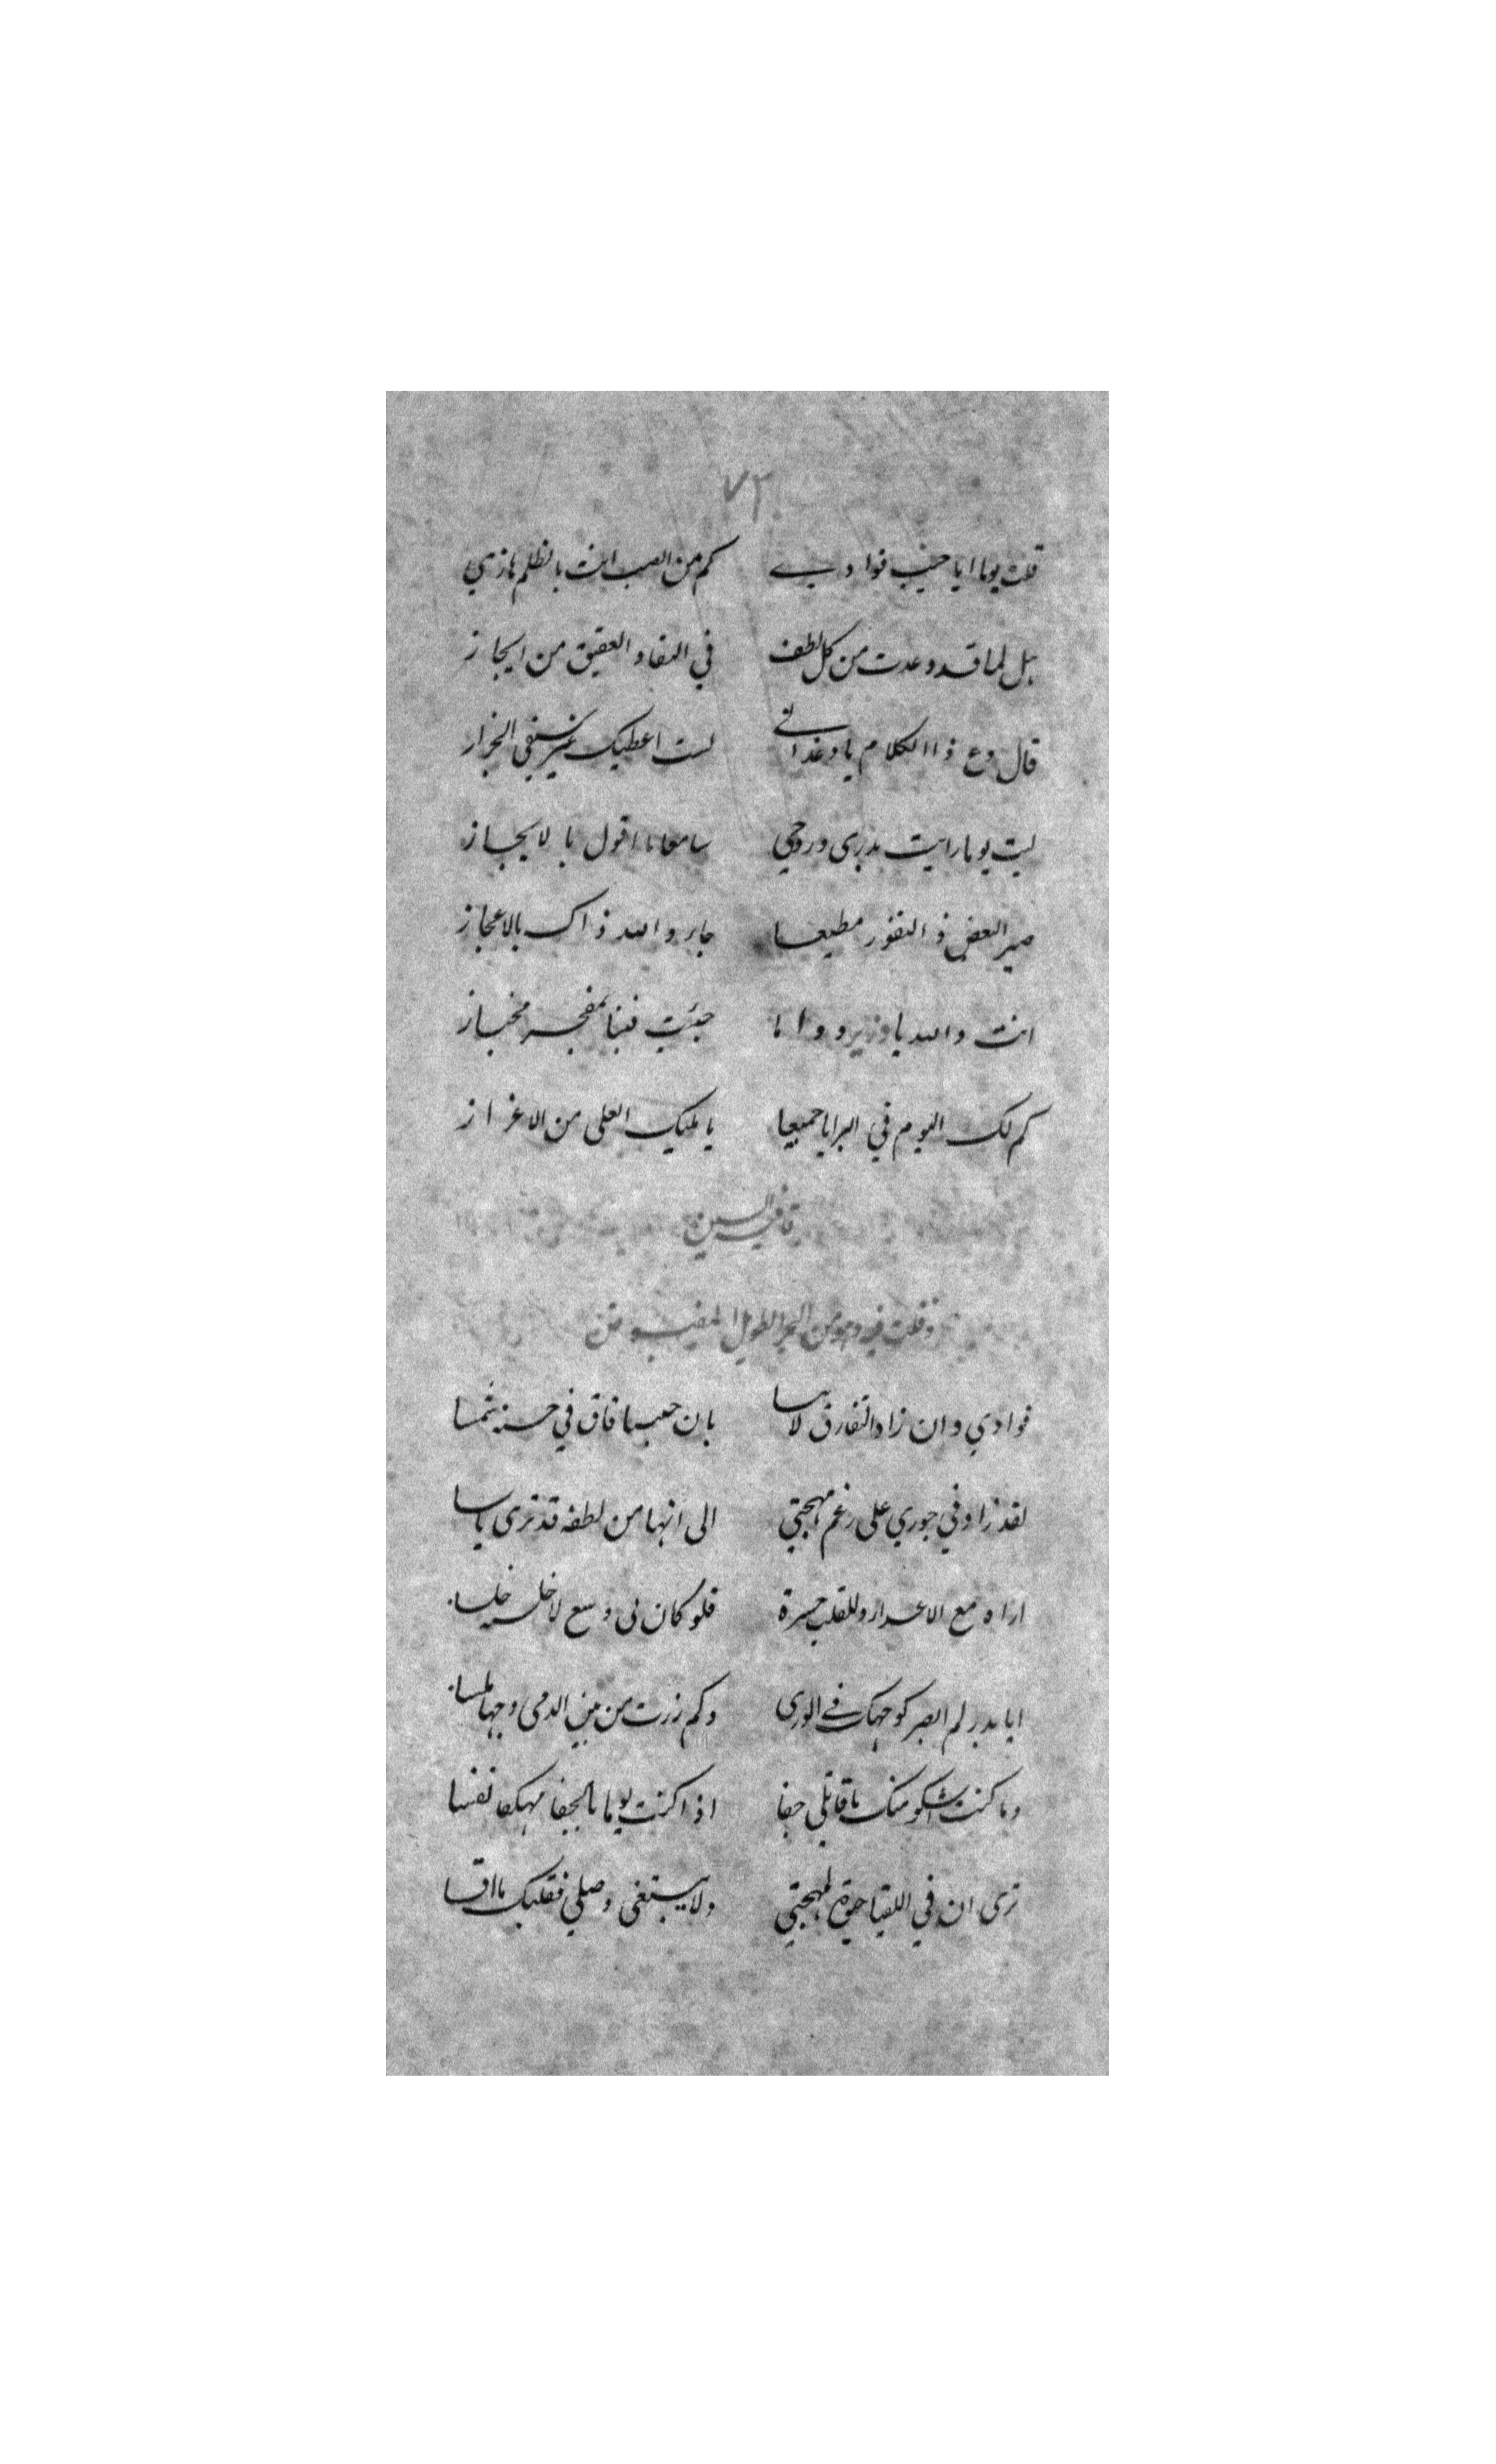 ٧٢
قلت يوما ايا حبيب فوادي كم من الصب انت بالظلم هازي
هل لما قد وعدت من كل لطف في النقا والعقيق من ايجاز
قال دع ذا الكلام يا وغد اني لست اعطيك غير سيفي الجزار
ليت يوما رايت بدري وروحي سامعا ما اقول بالايجاز
صير البعض ذ النفور مطيعا جابر والله ذاك بالاعجاز
انت والله يا وزير دواما جئت فينا بمفخر مخباز
كم لك اليوم في البرايا جميعا يا مليك العلى من الاغراز
قافية السين
وقلت فيه وهو من البحر الطويل المقبوض
فوادي وان زاد التفارق لا ينسا بان حبيبا فاق في حسنه شمسا
لقد زاد في جوري على رغم مهجتي الى انها من لطفه قد ترى ياسا
اراه مع الاعداء وللقلب حسرة فلو كان لي وسع لاخلسه خلسا
ايا بدر لم ابصر كوجهك في الورى وكم زرت من بين الدمى وجها ملسا
وما كنت اشكو منك يا قاتلي جفا اذا كنت يوما بالجفا مهلكا نفسا
ترى ان في اللقيا حيوة لمهجتي ولا يبتغى وصلي فقلبك ما اقسا